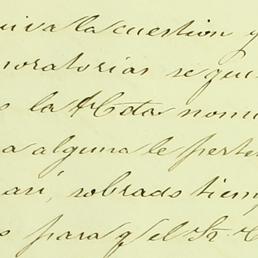 uiva la cuestion y
moratorias se que
s la Hda. nom
a alguna le perte
así, sobrado tiem
s para q el Sr.